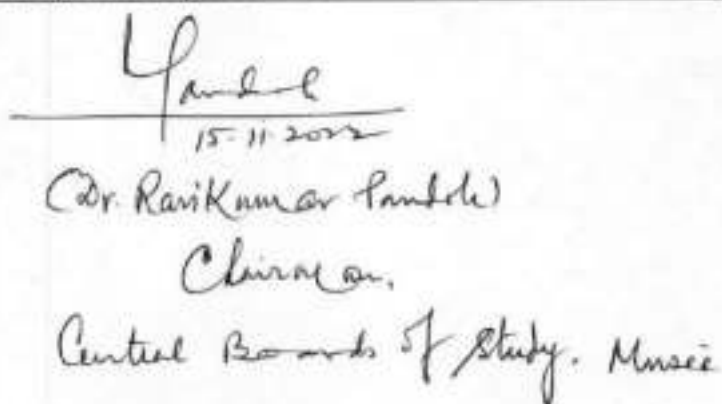 Pandole
15-11-2022
(Dr. RaviKumar Pandole)
Chairman.
Central Boards of Study. Music